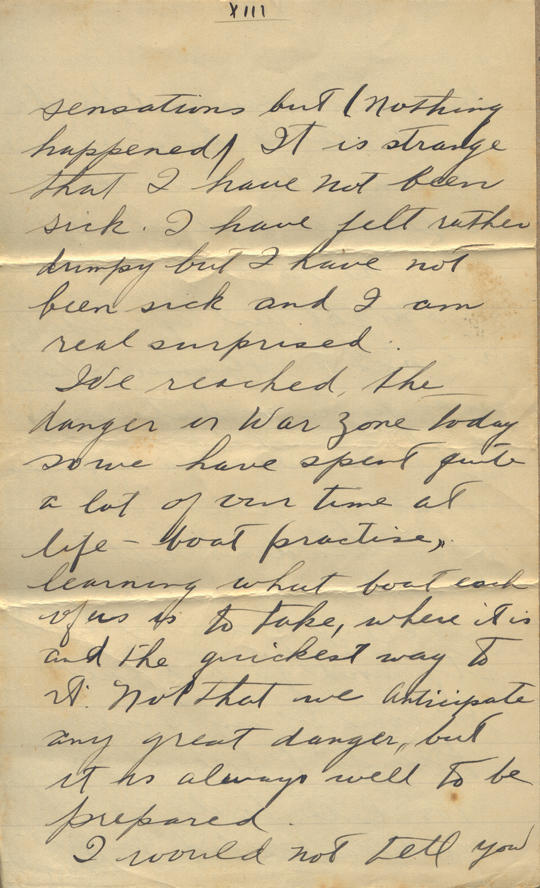 XIII
sensations but (Nothing
happened) It is strange
that I have not been
sick. I have felt rather
drimpy but I have not
been sick and I am
real surprised.
We reached, the
danger or War Zone today
so we have spent quite
a lot of our time at
life-boat practise,
learning what boat each
of us is to take, where it is
and the quickest way to
it. Not that we anticipate
any great danger, but
it is always well to be
prepared.
I would not tell you